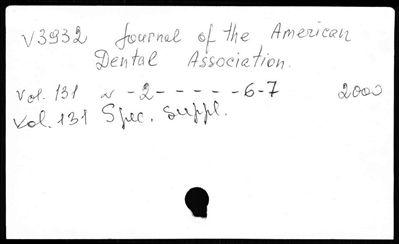 V3932 Journal of the American
Dental Association.
Vol. 131 N -2- - - - -6-7 2000
Vol. 131 Spec. suppl.